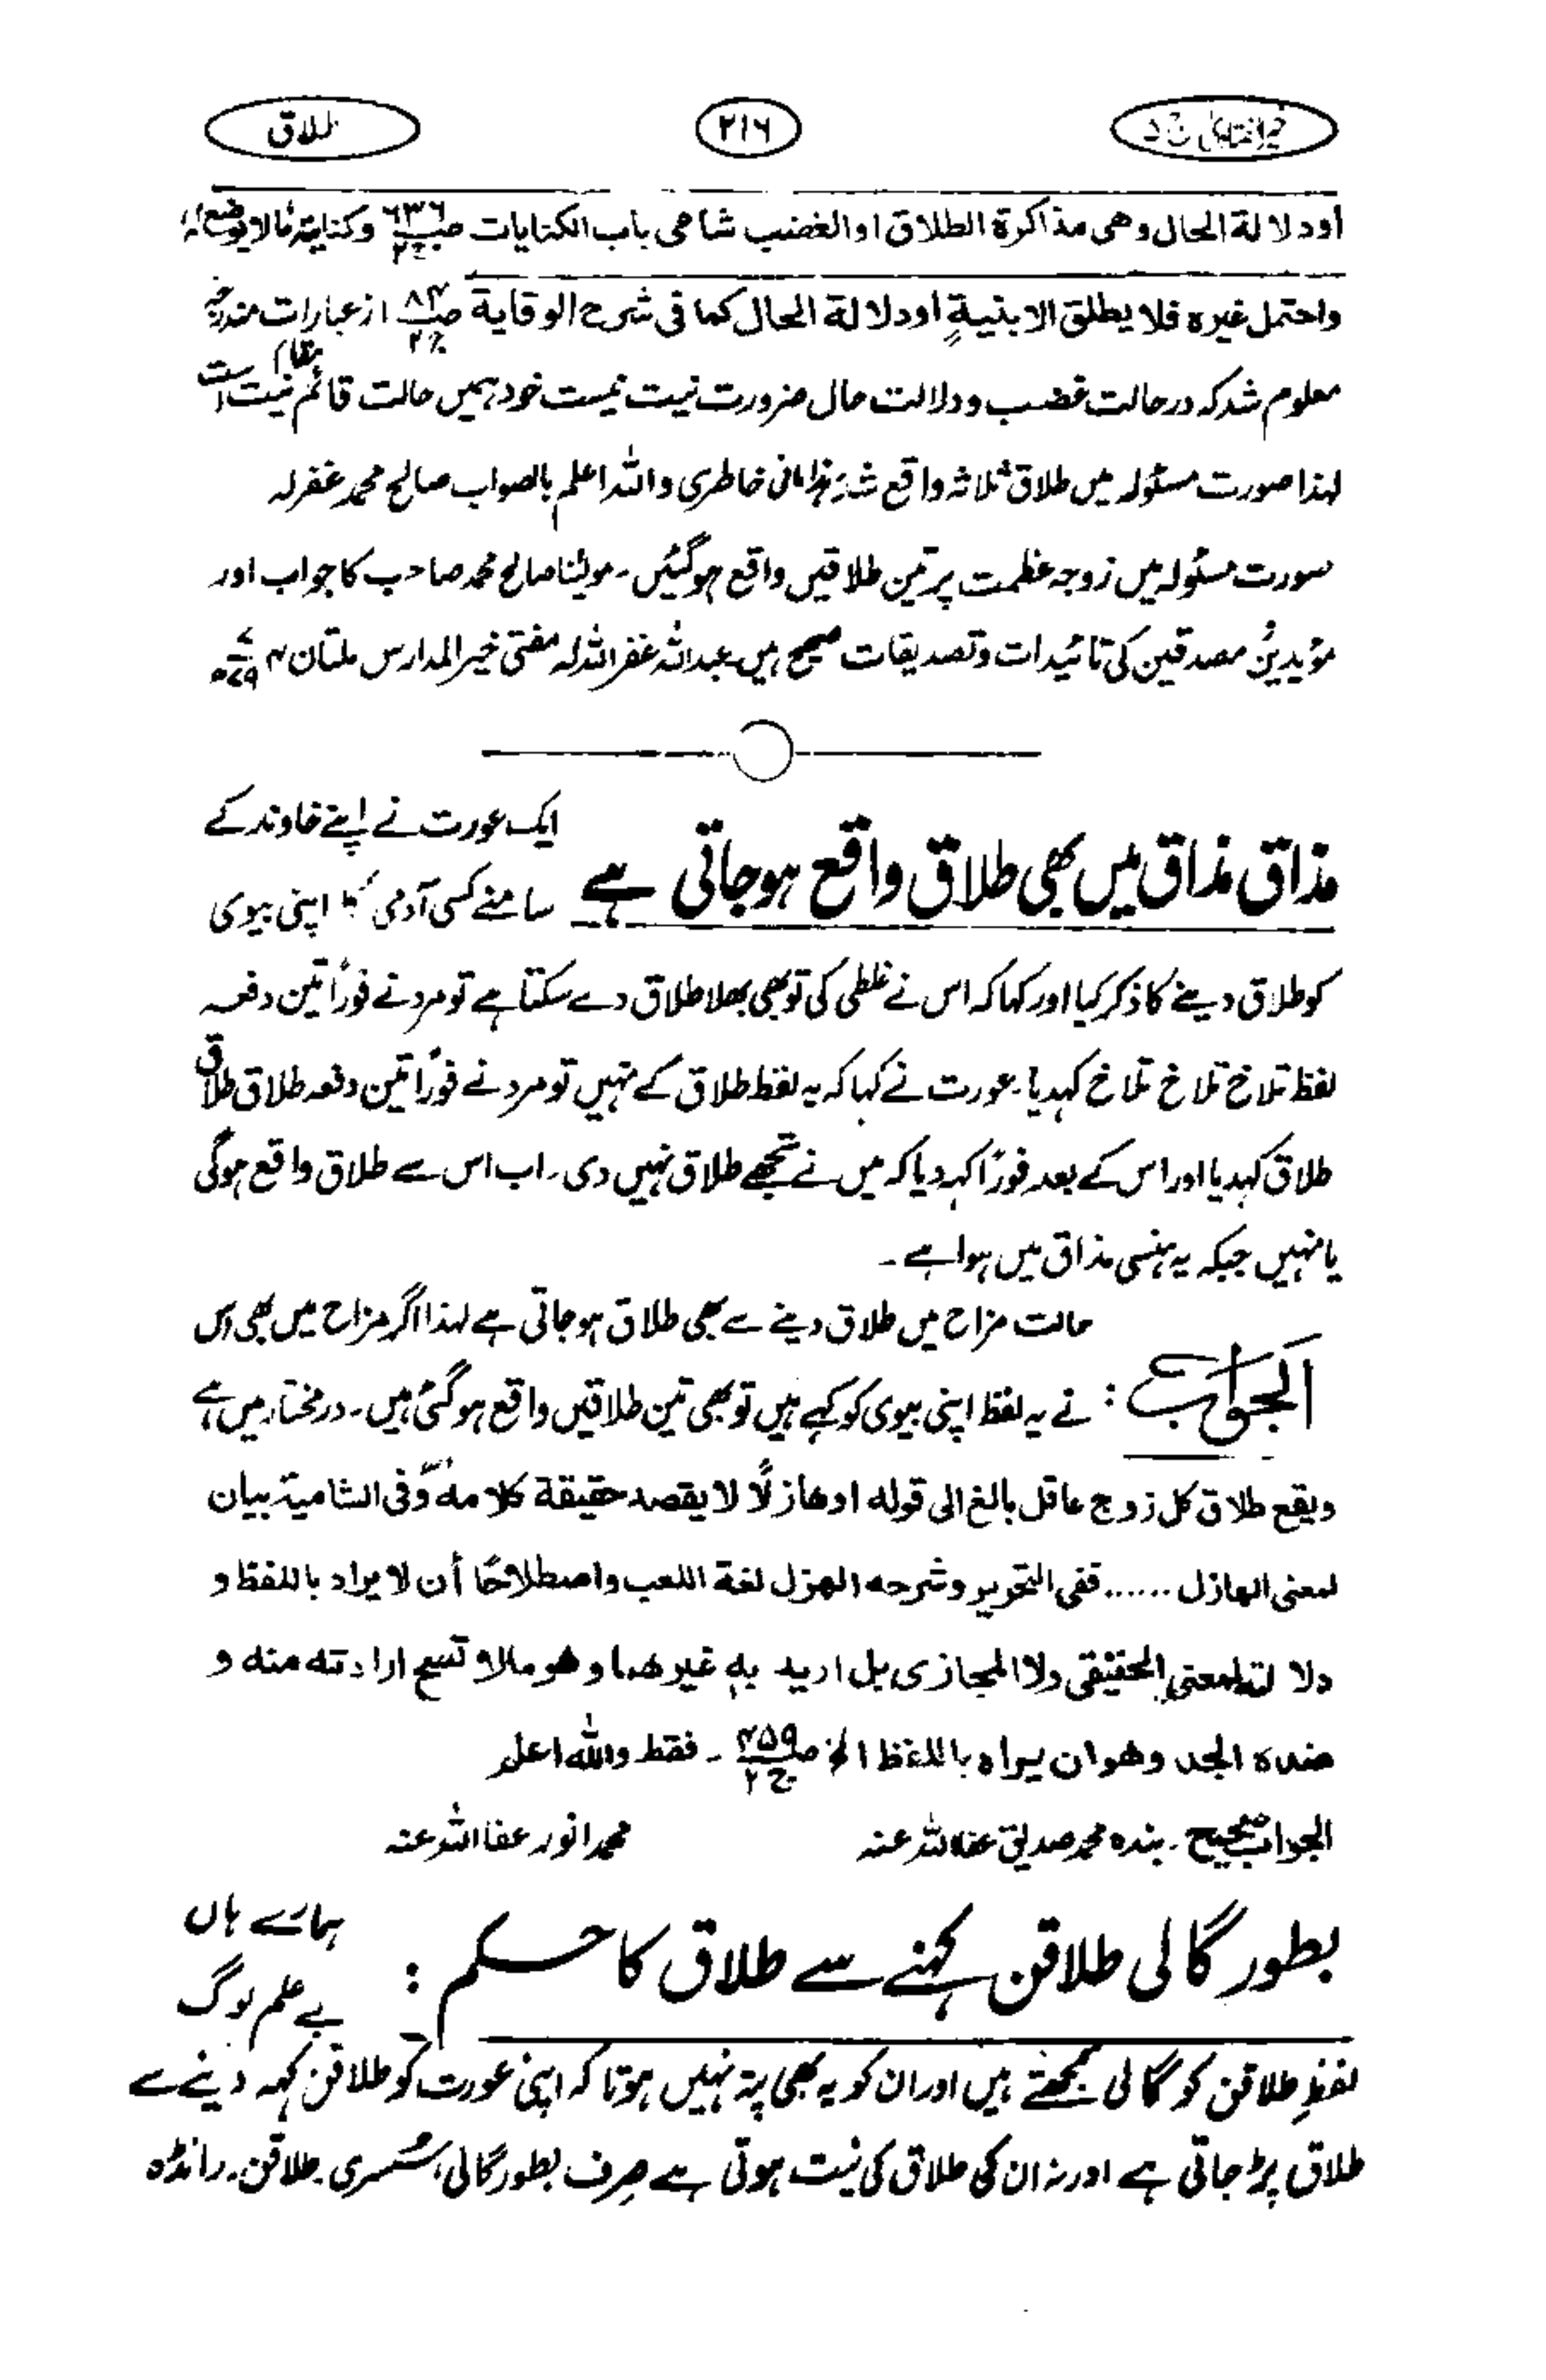 طلاق
۲۱۶
أو دلالة الحال وهى مذاكرة الطلاق او الغضب شامى باب الكنايات ص۶۳۶ ج۲ وكنايته مالا يوضع له
واحتمل غيره فلا يطلق الا بنيةٍ أو دلالة الحال كما فى شرح الوقاية ص۸۳ ج۲ از عبارات مندرجہ
معلوم شد کہ در حالت غضب و دلالت حال ضرورت نیت نیست خود ہمیں حالت قائم بمقام نیت است
لہذا صورت مسئولہ میں طلاق ثلاثہ واقع شد ہذا مانی خاطری واللہ اعلم بالصواب صالح محمد غفرلہ
صورت مسئولہ میں زوجہ عظمت پر تین طلاقیں واقع ہوگئیں۔ مولینا صالح محمد صاحب کا جواب اور
مؤیدین مصدقین کی تائیدات و تصدیقات صحیح ہیں عبداللہ غفراللہ لہ مفتی خیر المدارس ملتان
مذاق مذاق میں بھی طلاق واقع ہوجاتی ہے
ایک عورت نے اپنے خاوند کے
سامنے کسی آدمی کا اپنی بیوی
کو طلاق دینے کا ذکر کیا اور کہا کہ اس نے غلطی کی تو بھی بھلا طلاق دے سکتا ہے تو مرد نے فوراً تین دفعہ
لفظ تلاخ تلاخ تلاخ کہدیا۔ عورت نے کہا کہ یہ لفظ طلاق کے نہیں تو مرد نے فوراً تین دفعہ طلاق طلاق
طلاق کہدیا اور اس کے بعد فوراً کہہ دیا کہ میں نے تجھے طلاق نہیں دی۔ اب اس سے طلاق واقع ہوگی
یا نہیں جبکہ یہ ہنسی مذاق میں ہوا ہے۔
حالت مزاح میں طلاق دینے سے بھی طلاق ہوجاتی ہے لہذا اگر مزاح میں بھی اس
الجواب : نے یہ لفظ اپنی بیوی کو کہے ہیں تو بھی تین طلاقیں واقع ہوگئی ہیں۔ درمختار میں ہے
ويقع طلاق كل زوج عاقل بالغ الى قوله او هازلًا لا يقصد حقيقة كلامه وفى الشامية بيان
لمعنى الهازل ...... ففى التحرير وشرحه الهزل لغة اللعب واصطلاحًا أن لا يراد باللفظ و
دلالته المعنى الحقيقى ولا المجازى بل اريد به غيرهما وهو مالا تصح ارادته منه و
ضده الجد وهو ان يراد باللفظ الخ ص۴۵۹ ج۲ ۔ فقط واللہ اعلم
الجواب صحیح۔ بندہ محمد صدیق عفا اللہ عنہ
محمد انور عفا اللہ عنہ
بطور گالی طلاقن کہنے سے طلاق کا حکم :
ہمارے ہاں
بے علم لوگ
لفظِ طلاقن کو گالی سمجھتے ہیں اور ان کو یہ بھی پتہ نہیں ہوتا کہ اپنی عورت کو طلاقن کہہ دینے سے
طلاق پڑ جاتی ہے اور نہ ان کی طلاق کی نیت ہوتی ہے صرف بطور گالی، سُسری۔ طلاقن۔ رانڈہ